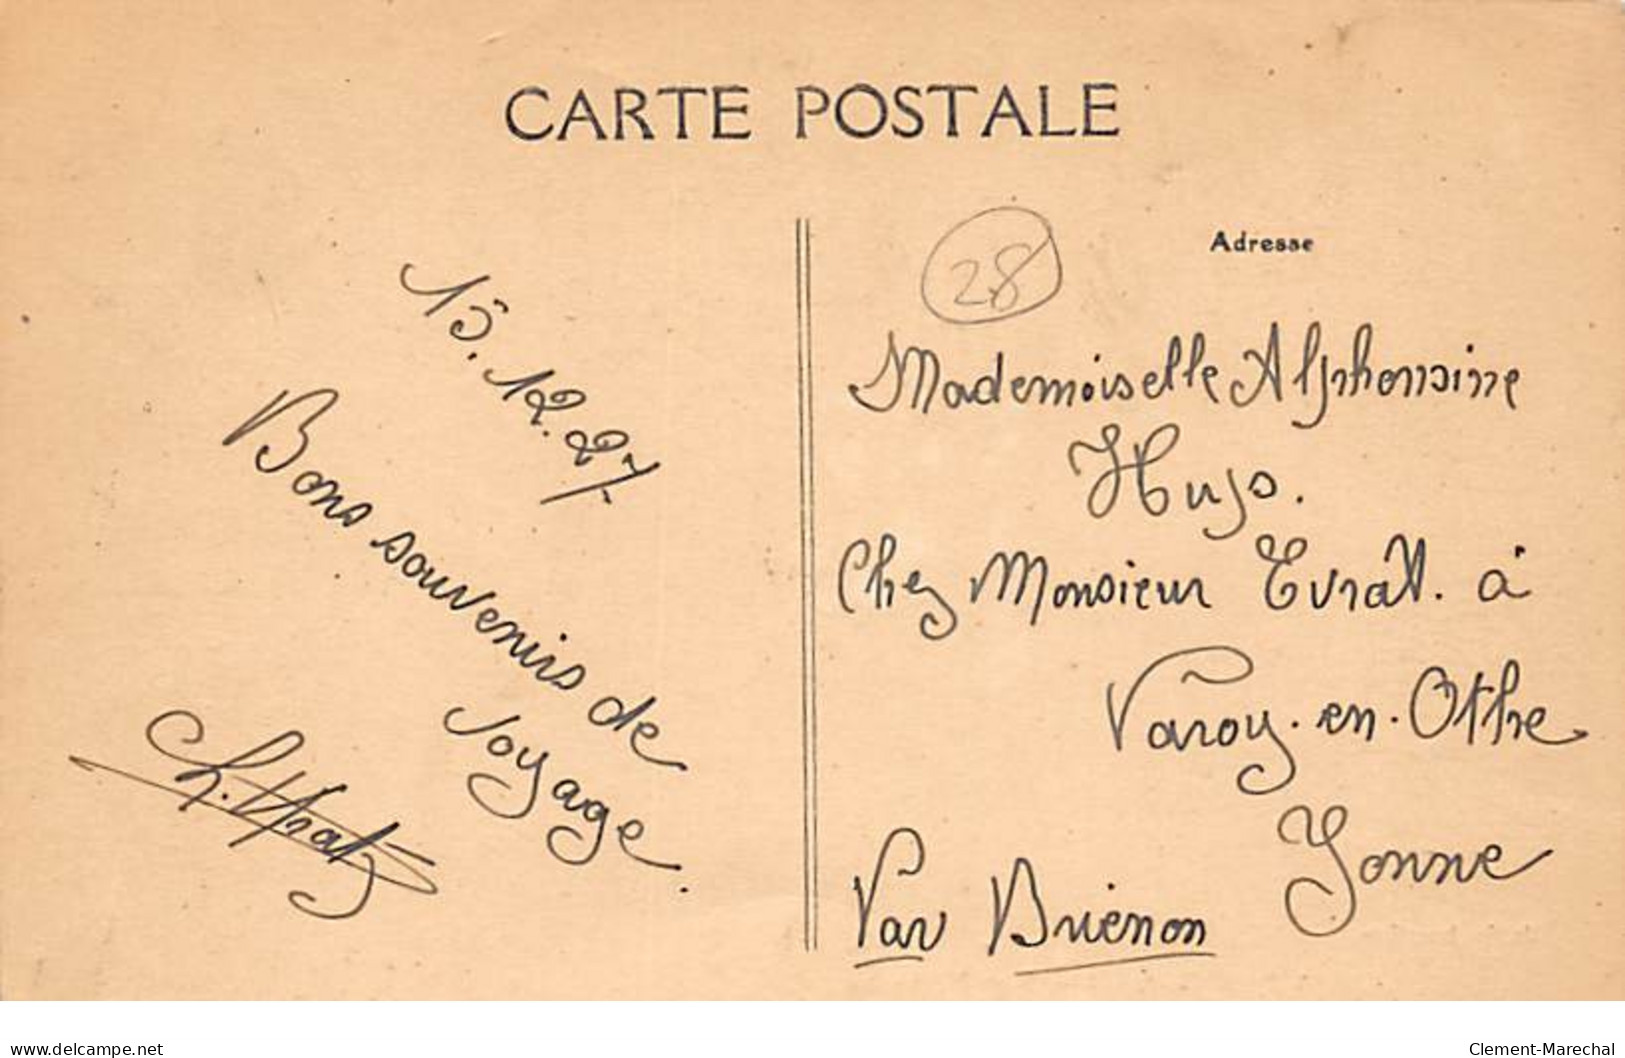 CARTE POSTALE
15.12.27
Bons souvenirs de
voyage.
28
Adresse
Mademoiselle Alphonsine
Huys.
Chez Monsieur Evrat. à
Varoy-en-Othe
Yonne
Par Brienon
delcampe.net
Clement-Marechal